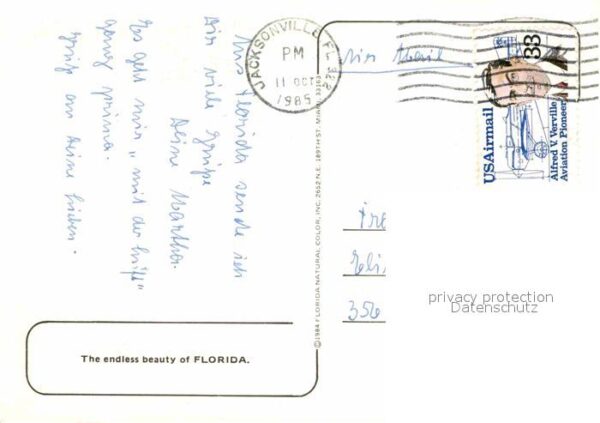 JACKSONVILLE, FL 322
PM
11 OCT
1985
Air Mail
33
USAirmail
Alfred V. Verville
Aviation Pioneer
Aus Florida sende ich
Dir viele Grüße
Deine Martha.
Es geht mir „mit der Hüfte"
ganz prima.
Grüß an Deine Lieben.
©1984 FLORIDA NATURAL COLOR, INC. 2652 N.E. 189TH ST. MIAMI, 33163
356
privacy protection
Datenschutz
The endless beauty of FLORIDA.